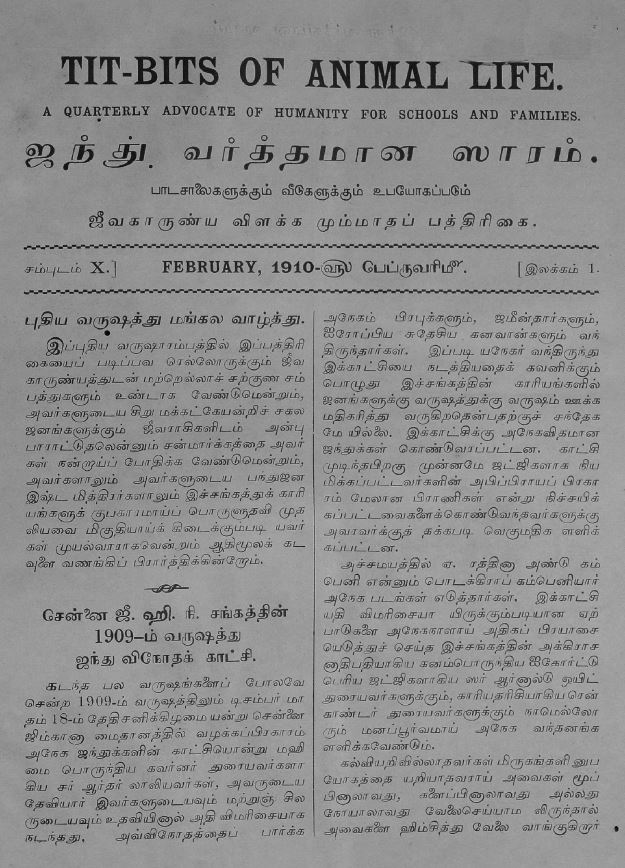 TIT-BITS OF ANIMAL LIFE.
A QUARTERLY ADVOCATE OF HUMANITY FOR SCHOOLS AND FAMILIES.
ஜந்து வர்த்தமான ஸாரம்.
பாடசாலைகளுக்கும் வீடுகளுக்கும் உபயோகப்படும்
ஜீவகாருண்ய விளக்க மும்மாதப் பத்திரிகை.
சம்புடம் X.]
FEBRUARY, 1910-ஹு பெப்ருவரிமீ.
[இலக்கம் 1.
புதிய வருஷத்து மங்கல வாழ்த்து.
இப்புதிய வருஷாரம்பத்தில் இப்பத்திரி
கையைப் படிப்பவ ரெல்லோருக்கும் ஜீவ
காருண்யத்துடன் மற்றெல்லாச் சற்குண சம்
பத்துகளும் உண்டாக வேண்டுமென்றும்,
அவர்களுடைய சிறு மக்கட்கேயன்றிச் சகல
ஜனங்களுக்கும் ஜீவராசிகளிடம் அன்பு
பாராட்டுதலென்னும் சன்மார்க்கத்தை அவர்
கள் நன்றாய்ப் போதிக்க வேண்டுமென்றும்,
அவர்களாலும் அவர்களுடைய பந்துஜன
இஷ்ட மித்திரர்களாலும் இச்சங்கத்துக் காரி
யங்களுக் குபகாரமாய்ப் பொருளுதவி முத
லியவை மிகுதியாய்க் கிடைக்கும்படி யவர்
கள் முயல்வாராகவென்றும் ஆதிமூலக் கட
வுளை வணங்கிப் பிரார்த்திக்கின்றோம்.
சென்னை ஜீ. ஹி. நி. சங்கத்தின்
1909-ம் வருஷத்து
ஜந்து விநோதக் காட்சி.
கடந்த பல வருஷங்களைப் போலவே
சென்ற 1909-ம் வருஷத்திலும் டிசம்பர் மா
தம் 18-ம் தேதி சனிக்கிழமையன்று சென்னை
ஜிம்கானா மைதானத்தில் வழக்கப்பிரகாரம்
அநேக ஜந்துக்களின் காட்சியொன்று மஹி
மை பொருந்திய கவர்னர் துரையவர்களா
கிய சர் ஆர்தர் லாலியவர்கள், அவருடைய
தேவியார் இவர்களுடையவும் மற்றுஞ் சில
ருடையவும் உதவியினால் அதி விமரிசையாக
நடந்தது. அவ்விநோதத்தைப் பார்க்க
அநேகம் பிரபுக்களும், ஜமீன்தார்களும்,
ஐரோப்பிய சுதேசிய கனவான்களும் வந்
திருந்தார்கள். இப்படி யநேகர் வந்திருந்து
இக்காட்சியை நடத்தியதைக் கவனிக்கும்
பொழுது இச்சங்கத்தின் காரியங்களில்
ஜனங்களுக்கு வருஷத்துக்கு வருஷம் ஊக்க
மதிகரித்து வருகிறதென்பதற்குச் சந்தேக
மே யில்லை. இக்காட்சிக்கு அநேகவிதமான
ஜந்துக்கள் கொண்டுவரப்பட்டன. காட்சி
முடிந்தபிறகு முன்னமே ஜட்ஜிகளாக நிய
மிக்கப்பட்டவர்களின் அபிப்பிராயப் பிரகா
ரம் மேலான பிராணிகள் என்று நிச்சயிக்
கப்பட்டவைகளைக்கொண்டுவந்தவர்களுக்கு
அவரவர்க்குத் தக்கபடி வெகுமதிக ளளிக்
கப்பட்டன.
அச்சமயத்தில் ஏ. ரத்தினா அண்டு கம்
பெனி என்னும் பொடக்கிராப் கம்பெனியார்
அநேக படங்கள் எடுத்தார்கள், இக்காட்சி
யதி விமரிசையா யிருக்கும்படியான ஏற்
பாடுகளை அநேகநாளாய் அதிகப் பிரயாசை
யெடுத்துச் செய்த இச்சங்கத்தின் அக்கிராச
னாதிபதியாகிய கனம்பொருந்திய ஐகோர்ட்டு
பெரிய ஜட்ஜிகளாகிய ஸர் ஆர்னால்டு ஒயிட்
துரையவர்களுக்கும், காரியதரிசியாகிய ரென்
காண்டர் துரையவர்களுக்கும் நாமெல்லோ
ரும் மனப்பூர்வமாய் அநேக வந்தனங்க
ளளிக்கவேண்டும்.
கல்வியறிவில்லாதவர்கள் மிருகங்களினுப
யோகத்தை யறியாதவராய் அவைகள் மூப்
பினாலாவது, களைப்பினாலாவது அல்லது
நோயாலாவது வேலைசெய்யாம லிருந்தால்
அவைகளை ஹிம்சித்து வேலை வாங்குகிறார்